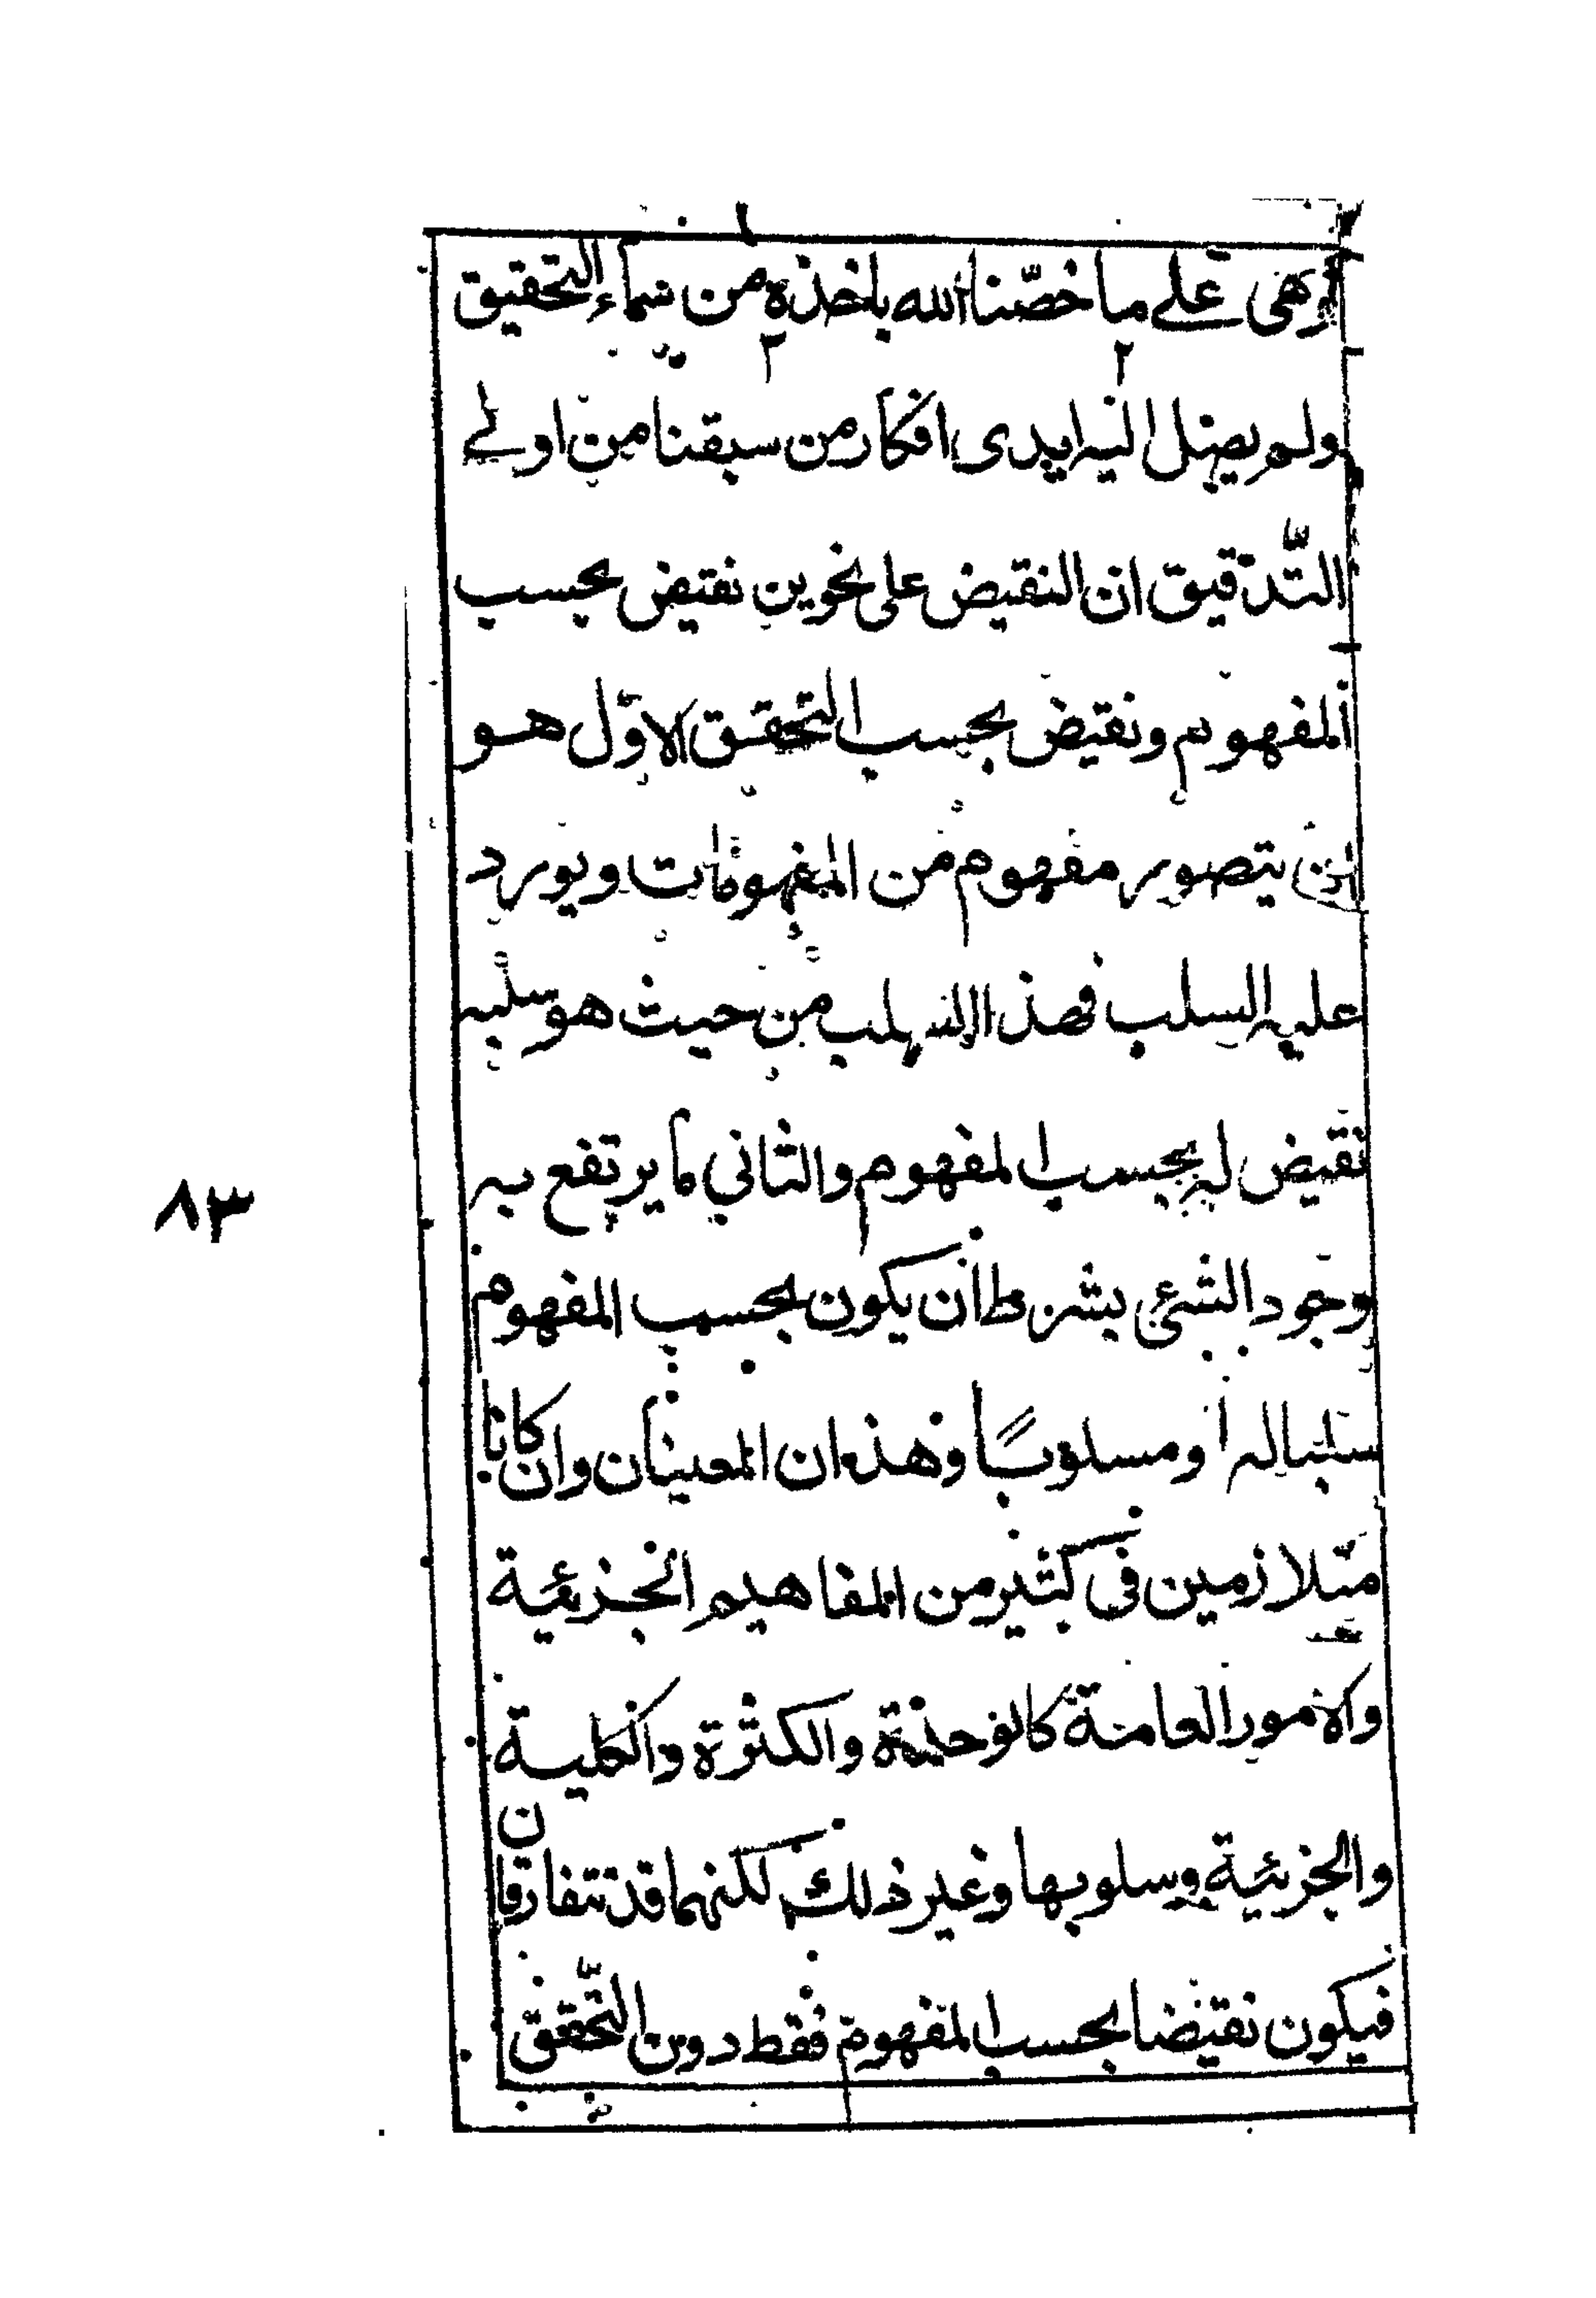 وهى على ما خصّنا الله باخذه من سماء التحقيق
ولم يصل اليه ايدى افكار من سبقنا من اولے
التّدقيق ان النقيض على نحوين نقيض بحسب
المفهوم ونقيض بحسب التحقق الاوّل هو
ان يتصور مفهوم من المفهومات ويورد
عليه السلب فهذا السلب من حيث هو سلبه
نقيض له بحسب المفهوم والثاني ما يرتفع به
وجود الشئ بشرط ان يكون بحسب المفهوم
سلبا له او مسلوبًا وهذان المعنيان وان كانا
متلازمين فى كثير من المفاهيم الجزئية
والامور العامة كالوحدة والكثرة والكلية
والجزئية وسلوبها وغير ذلك لكنهما قد تتفارقان
فيكون نقيضا بحسب المفهوم فقط دون التّحقق
٨٣